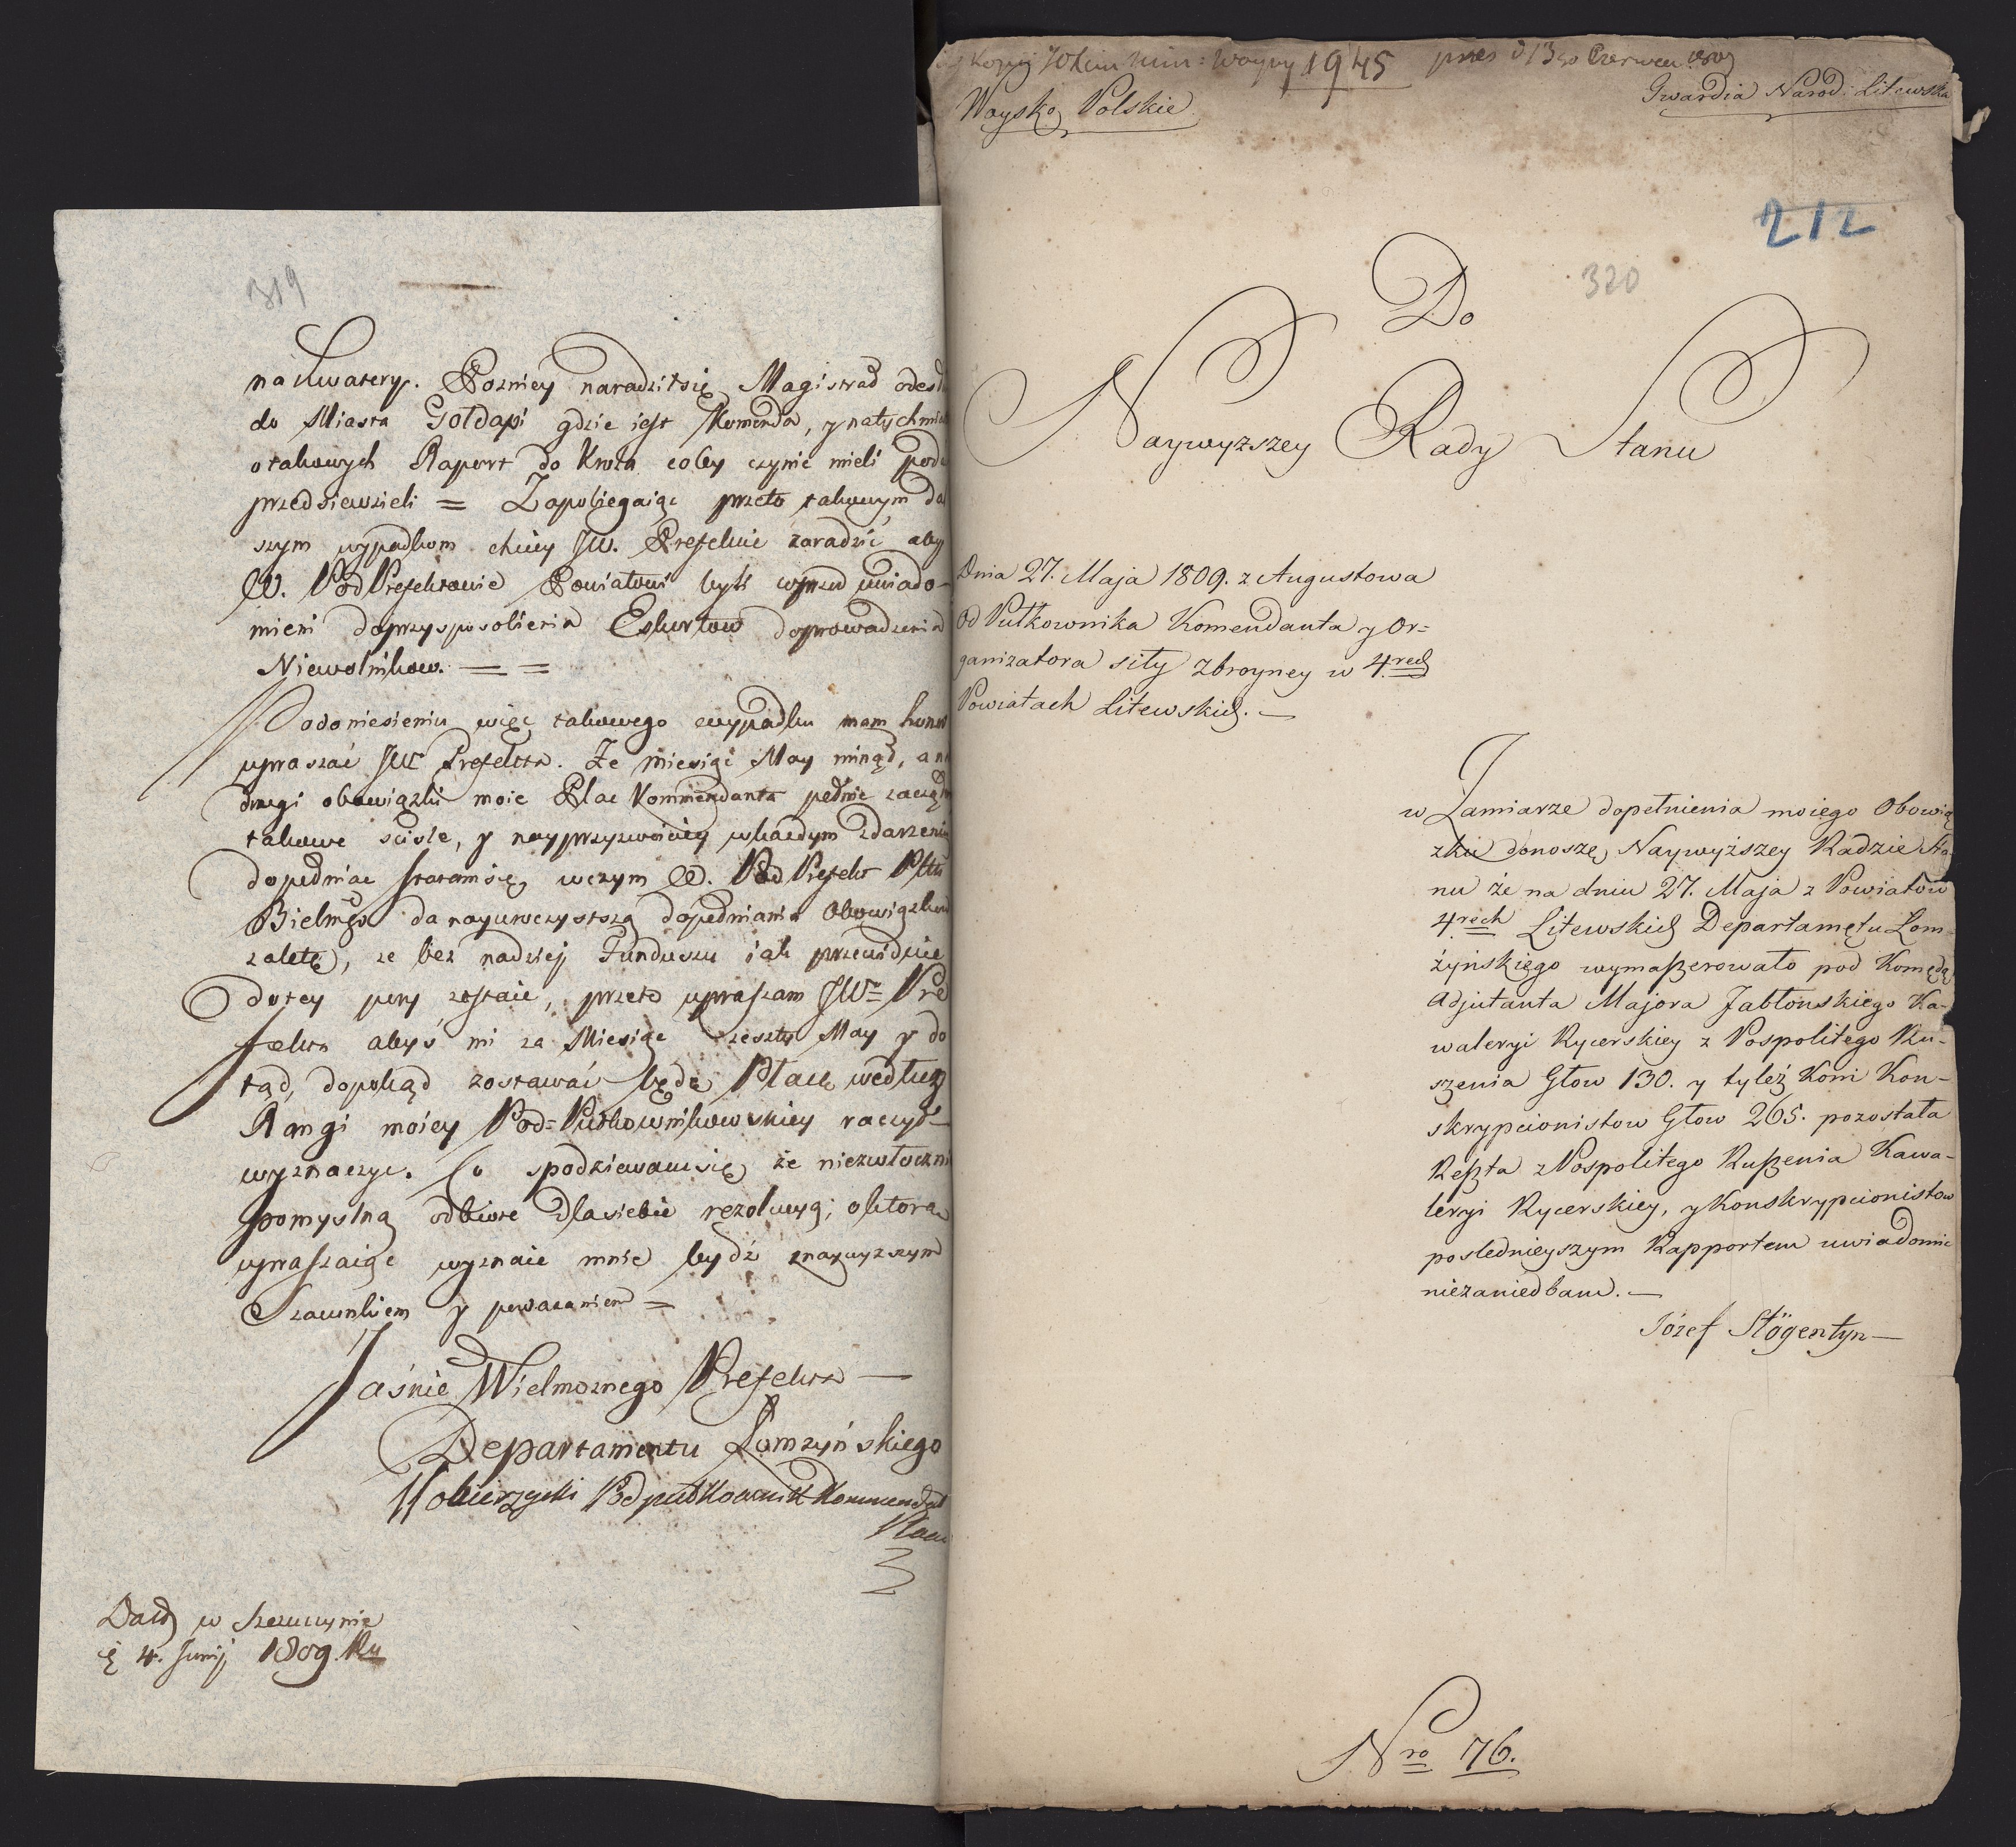 319
na kwatery. Pozniey naradził się Magistrad odesł
do Miasta Gołdapi gdzie iest Komenda, y natychmia
o takowych Raport do Krola coby czynić mieli pod
przedsiewzieli = Zapobiegaiąc przeto takowym da
szym wypadkom chciey JW. Prefekcie zaradzić aby
W. PodPrefektowie Powiatowi byli wprzód uwiado-
mieni do przysposobienia Eskortow doprowadzenia
Niewolnikow. = =
Po doniesieniu więc takowego wypadku mam honor
upraszać JW Prefekta. Że miesiąc May minął, a na
drugi obowiązki moie Plac Kommendanta pełnić zaczął
takowe scisle, y nayprzyzwoiciey w każdym zdarzeniu
dopełniac staram się, w czym W. Pod Prefekt Pttu
Bielskego da nayuroczystszą dopełniania Obowiązkow
zaletę, że bez nadziej Funduszu iak przewidzieć
do tey pory zostaie, przeto upraszam JWo Pre
fekta abyś mi za Miesiąc zeszły May y do
tąd, dopokąd zostawać będę Płacę według
Rangi moiey Pod=Pułkownikowskiey raczył
wyznaczyc. Co spodziewam się że niezwłoczni
pomyslną odbiore dla siebie rezolucyą; o ktorą
upraszaiąc wyznaie mnie bydź znaywyzszym
Szacunkiem y powazaniem =
Jaśnie Wielmoznego Prefekta —
Departamentu Łomzyńskiego
Kobierzycki Podpułkownik Kommendat
Placu
Dato w Szczuczynie
d. 4. Junij 1809. Ru
Kopij Woyny 1945 pres d 13go Czerwca 1809
Woysko Polskie
Gwardia Narod: Litewska
212
320
Do
Naywyzszey Rady Stanu
Dnia 27. Maja 1809. z Augustowa
Od Pułkownika Komendanta y Or=
ganizatora siły zbroyney w 4rech
Powiatach Litewskich. —
w Zamiarze dopełnienia moiego Obowią
zku donoszę Naywyższey Radzie Sta-
nu że na dniu 27. Maja z Powiatow
4rech Litewskich Departamętu Łom-
żyńskiego wymaszerowało pod Komędą
Adjutanta Majora Jabłonskiego Ka-
waleryi Rycerskiey z Pospolitego Ru-
szenia Głow 130. y tyleż Koni Kon-
skrypcionistow Głow 265. pozostała
Reszta z Pospolitego Ruszenia Kawa-
leryi Rycerskiey, y Konskrypcionistow
poslednieyszym Rapportem uwiadomic
niezaniedbam. —
Józef Stögentyn —
Nro 76.